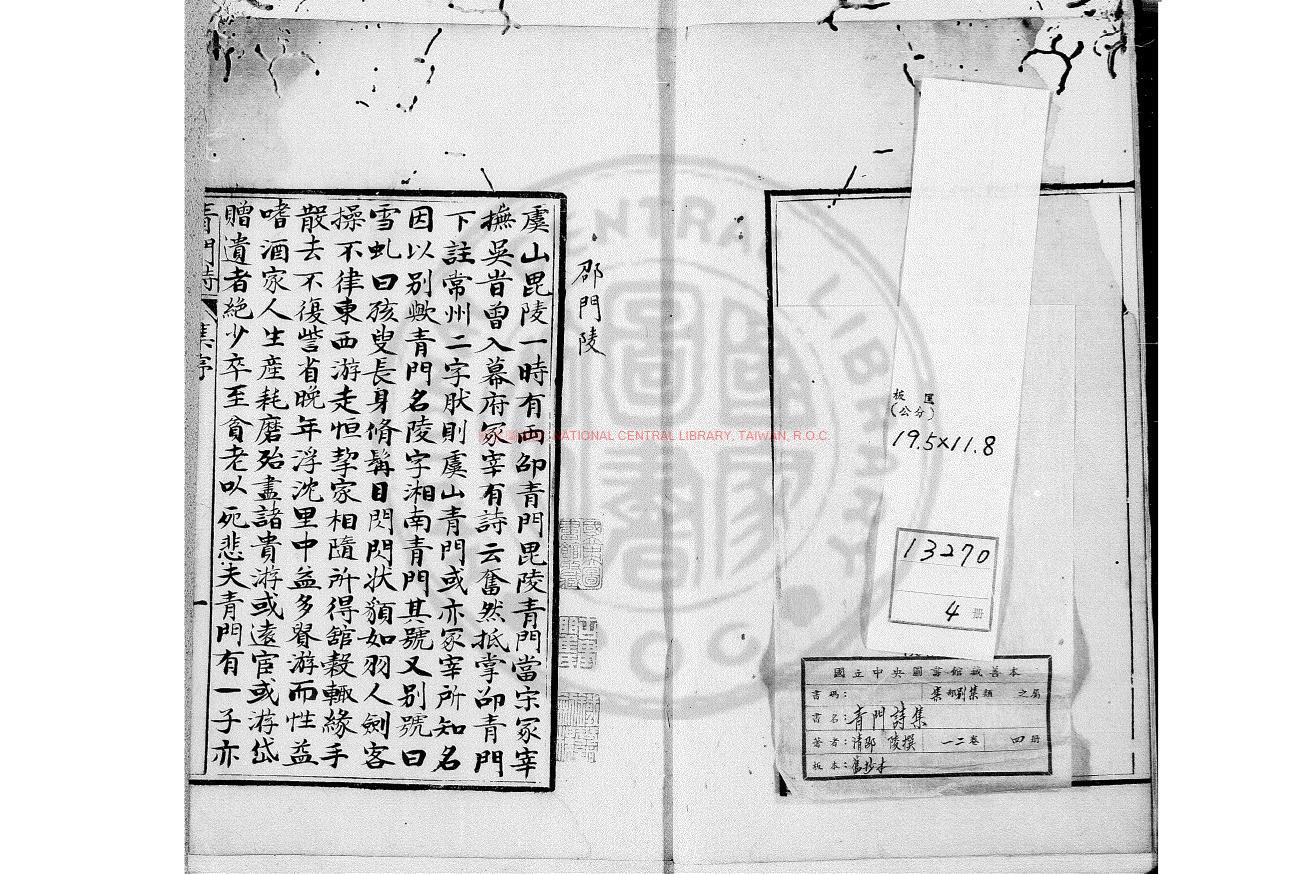 邵門陵
虞山毘陵一時有兩邵青門毘陵青門當宋冢宰
撫吳昔曾入幕府冢宰有詩云奮然抵掌邵青門
下註常州二字肰則虞山青門或亦冢宰所知名
因以別歟青門名陵字湘南青門其號又别號曰
雪虬曰孩叟長身脩髯目閃閃狀頟如羽人劍客
操不律東西游走恒挈家相隨所得館穀輒緣手
散去不復訾省晚年浮沈里中益多督游而性益
嗜酒家人生產耗磨殆盡諸貴游或遠宦或游岱
贈遺者絶少卒至貧老以死悲夫青門有一子亦
青門詩集序
一
板匡
(公分)
19.5×11.8
13270
4 册
國立中央圖書館藏善本
書碼： 集部别集類 之屬
書名：青門詩集
著者：清邵陵撰 一二卷 四册
板本：舊抄本
NATIONAL CENTRAL LIBRARY, TAIWAN, R.O.C.